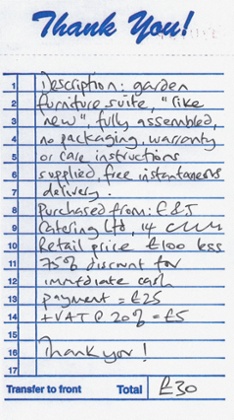 Thank You!
1 Description: garden
2 furniture suite, "like
3 new", fully assembled,
4 no packaging, warranty
5 or care instructions
6 supplied, free instantaneous
7 delivery.
8 Purchased from: E & J
9 Catering Ltd, 14
10 Retail price £100 less
11 75% discount for
12 immediate cash
13 payment = £25
14 + VAT @ 20% = £5
15
16 Thank you!
17
Transfer to front Total £30